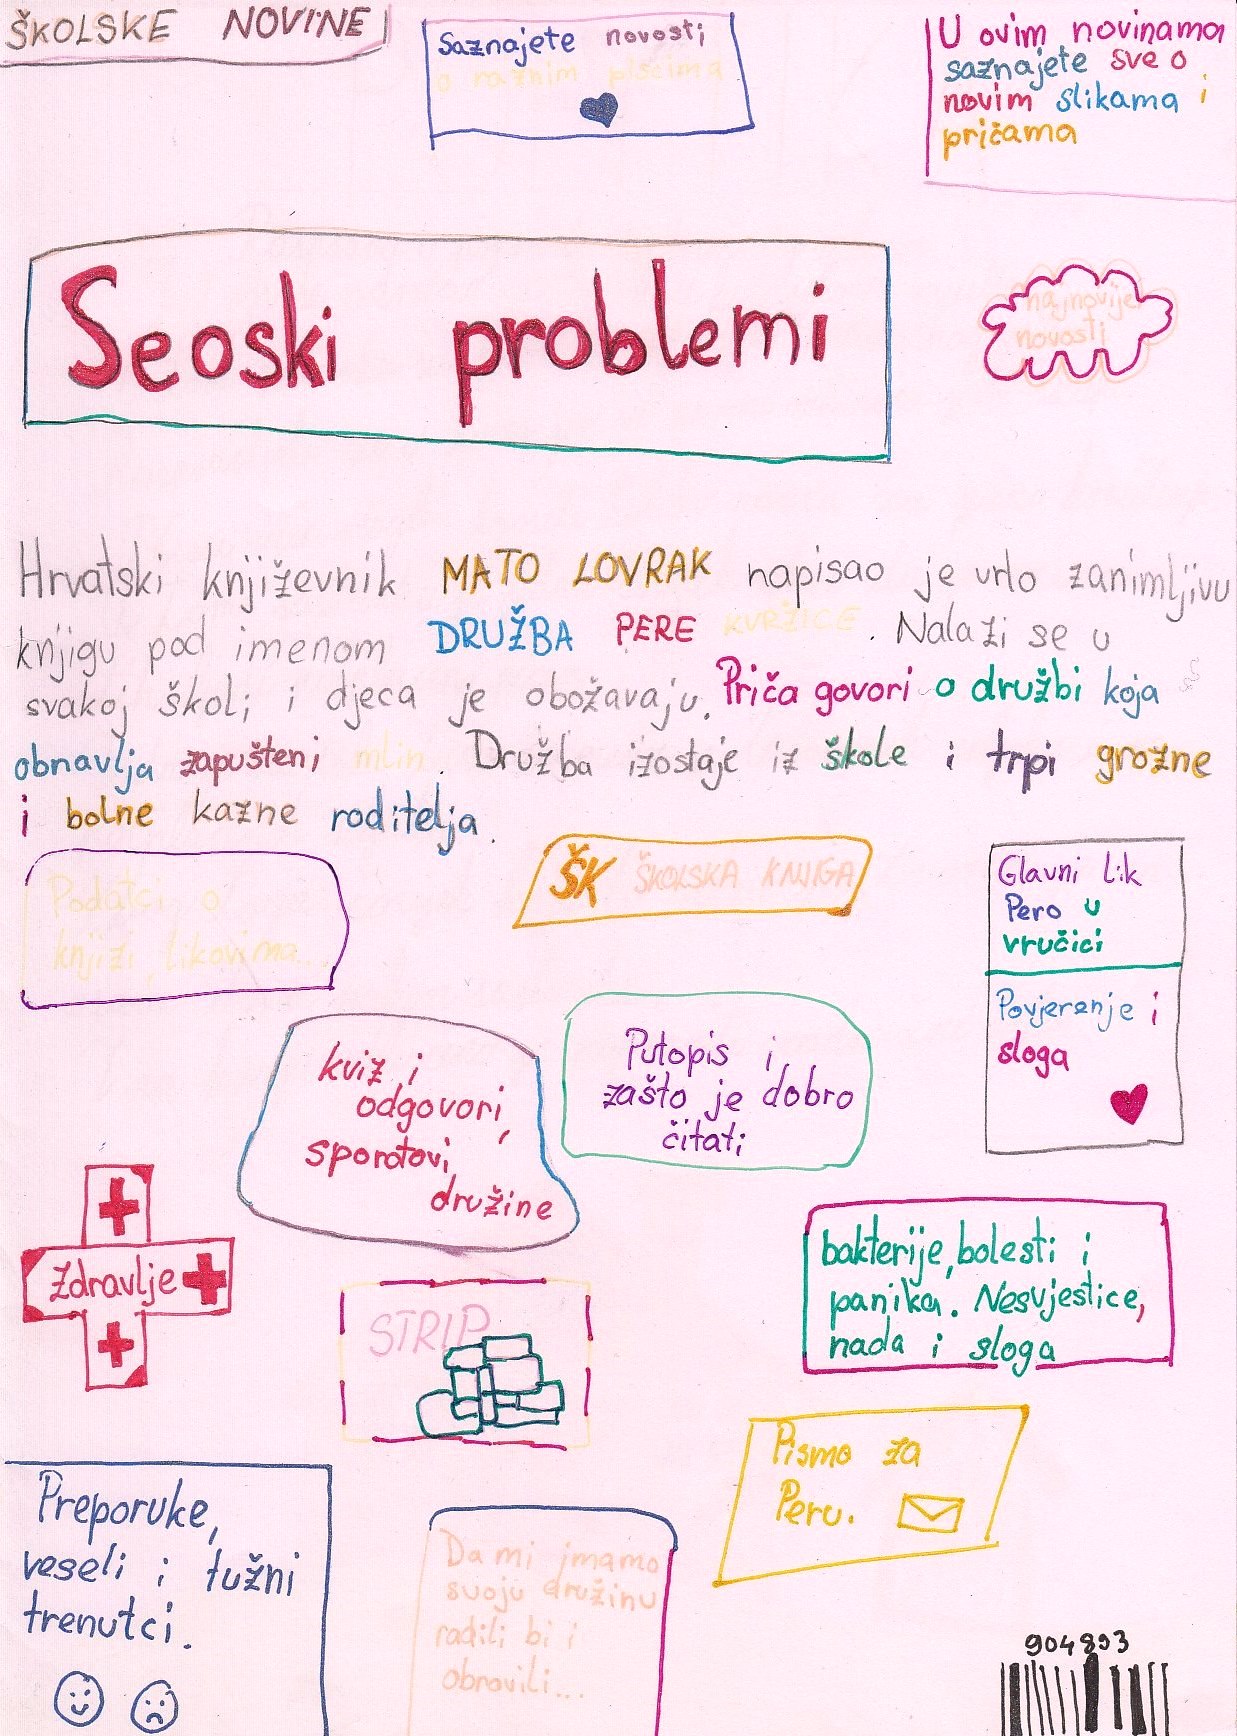 ŠKOLSKE NOVINE
Saznajete novosti
o raznim piscima
U ovim novinama
saznajete sve o
novim slikama i
pričama
Seoski problemi
najnovije
novosti
Hrvatski književnik MATO LOVRAK napisao je vrlo zanimljivu
knjigu pod imenom DRUŽBA PERE KVRŽICE. Nalazi se u
svakoj školi i djeca je obožavaju. Priča govori o družbi koja
obnavlja zapušteni mlin. Družba izostaje iz škole i trpi grozne
i bolne kazne roditelja.
Podatci o
knjizi, likovima...
ŠK ŠKOLSKA KNJIGA
Glavni lik
Pero u
vručici
Povjerenje i
sloga
kviz i
odgovori,
sporotovi,
družine
Putopis i
zašto je dobro
čitati
Zdravlje
STRIP
bakterije, bolesti i
panika. Nesvjestice,
nada i sloga
Pismo za
Peru.
Preporuke,
veseli i tužni
trenutci.
Da mi imamo
svoju družinu
radili bi i
obnovili...
904893